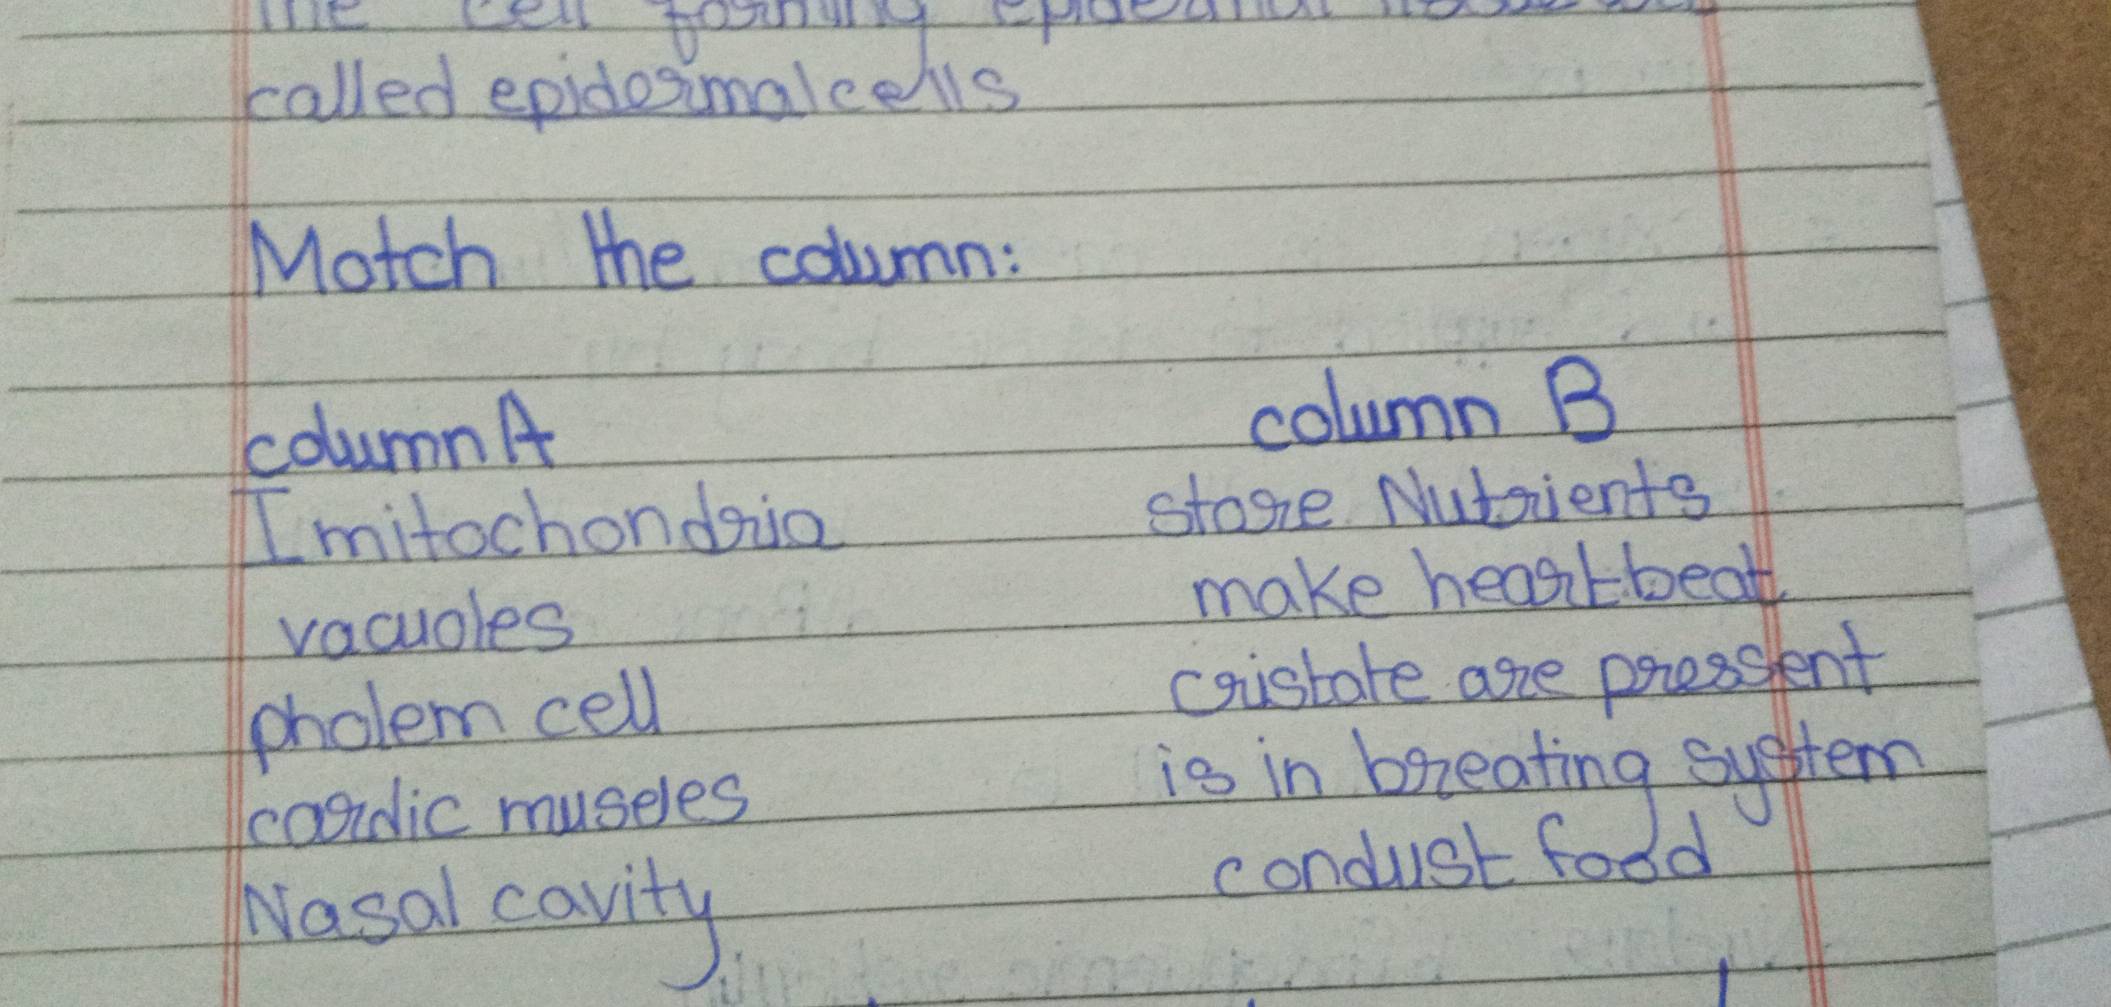 the cell forming epidermal tissue are
called epidermal cells
Match the column:
column A column B
I mitochondria store Nutrients
vacuoles make heart beat
pholem cell cristate are pressent
cardic museles is in breating system
Nasal cavity condust food